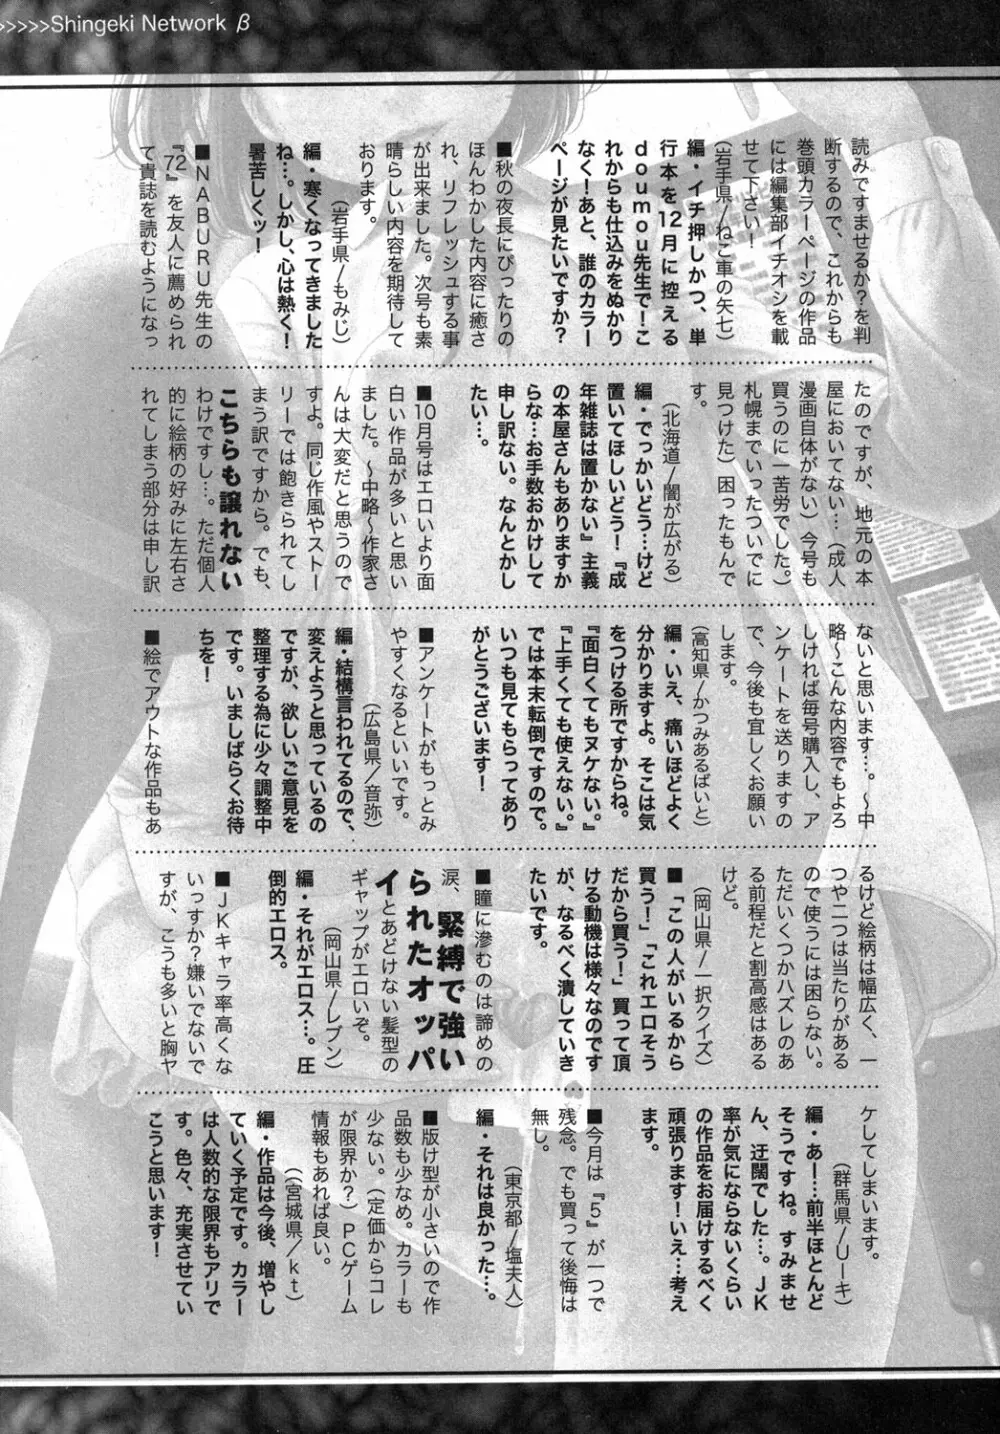 >>>>>Shingeki Network β
読みですませるか？を判
断するので、これからも
巻頭カラーページの作品
には編集部イチオシを載
せて下さい！
（岩手県/ねこ車の矢七）
編・イチ押しかつ、単
行本を12月に控える
doumou先生で！こ
れからも仕込みをぬかり
なく！あと、誰のカラー
ページが見たいですか？
■秋の夜長にぴったりの
ほんわかした内容に癒さ
れ、リフレッシュする事
が出来ました。次号も素
晴らしい内容を期待して
おります。
（岩手県/もみじ）
編・寒くなってきました
ね…。しかし、心は熱く！
暑苦しくッ！
■NABURU先生の
『72』を友人に薦められ
て貴誌を読むようになっ
たのですが、地元の本
屋においてない…（成人
漫画自体がない）今号も
買うのに一苦労でした。（
札幌までいったついでに
見つけた）困ったもんで
す。
（北海道/闇が広がる）
編・でっかいどう…けど
置いてほしいどう！『成
年雑誌は置かない』主義
の本屋さんもありますか
らな…お手数おかけして
申し訳ない。なんとかし
たい…。
■10月号はエロいより面
白い作品が多いと思い
ました。～中略～作家さ
んは大変だと思うので
すよ。同じ作風やストー
リーでは飽きられてし
まう訳ですから。でも、
こちらも譲れない
わけですし…。ただ個人
的に絵柄の好みに左右さ
れてしまう部分は申し訳
ないと思います…。～中
略～こんな内容でもよろ
しければ毎号購入し、ア
ンケートを送りますの
で、今後も宜しくお願い
します。
（高知県/かつみあるばいと）
編・いえ、痛いほどよく
分かりますよ。そこは気
をつける所ですからね。
『面白くてもヌケない。』
『上手くても使えない。』
では本末転倒ですので。
いつも見てもらってあり
がとうございます！
■アンケートがもっとみ
やすくなるといいです。
（広島県/音弥）
編・結構言われてるので、
変えようと思っているの
ですが、欲しいご意見を
整理する為に少々調整中
です。いましばらくお待
ちを！
■絵でアウトな作品もあ
るけど絵柄は幅広く、一
つや二つは当たりがある
ので使うには困らない。
ただいくつかハズレのあ
る前程だと割高感はある
けど。
（岡山県/一択クイズ）
■「この人がいるから
買う！」「これエロそう
だから買う！」買って頂
ける動機は様々なのです
が、なるべく潰していき
たいです。
■瞳に滲むのは諦めの
涙、緊縛で強い
られたオッパ
イとあどけない髪型の
ギャップがエロいぞ。
（岡山県/レブン）
編・それがエロス…。圧
倒的エロス。
■JKキャラ率高くな
いっすか？嫌いでないで
すが、こうも多いと胸ヤ
ケしてしまいます。
（群馬県/Uーキ）
編・あー…前半ほとんど
そうですね。すみませ
ん、迂闊でした…。JK
率が気にならないくらい
の作品をお届けするべく
頑張ります！いえ…考え
ます。
■今月は『5』が一つで
残念。でも買って後悔は
無し。
（東京都/塩夫人）
編・それは良かった…。
■版け型が小さいので作
品数も少なめ。カラーも
少ない。（定価からコレ
が限界か？）PCゲーム
情報もあれば良い。
（宮城県/kt）
編・作品は今後、増やし
ていく予定です。カラー
は人数的な限界もアリで
す。色々、充実させてい
こうと思います！